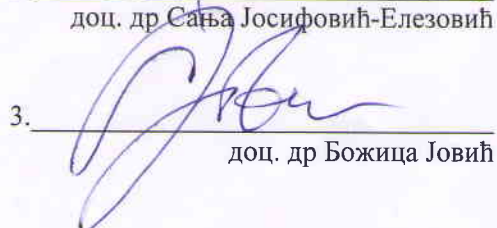 доц. др Сања Јосифовић-Елезовић
3.
доц. др Божица Јовић